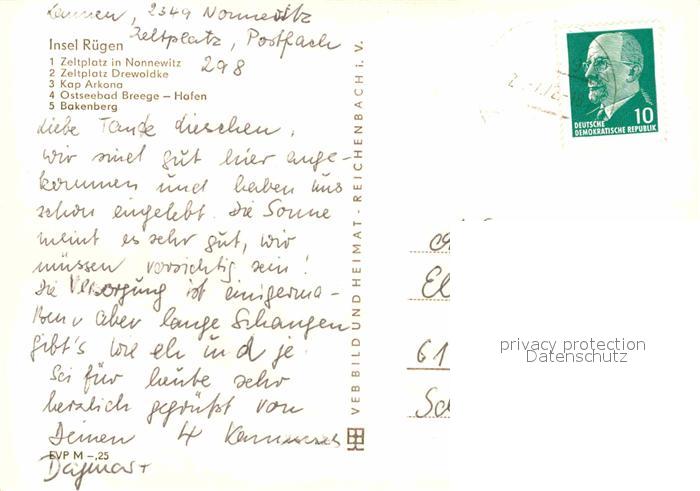 2349 Nonnewitz
Zeltplatz, Postfach
298
Insel Rügen
1 Zeltplatz in Nonnewitz
2 Zeltplatz Drewoldke
3 Kap Arkona
4 Ostseebad Breege – Hafen
5 Bakenberg
Liebe Tante Lieschen,
wir sind gut hier ange-
kommen und haben uns
schon eingelebt. Die Sonne
meint es sehr gut, wir
müssen vorsichtig sein!
Die Versorgung ist einigerma-
ßen, aber lange Schangen
gibt's wie eh und je.
Sei für heute sehr
herzlich gegrüßt von
Deinen 4
Dagmar +
EVP M –,25
VEB BILD UND HEIMAT · REICHENBACH i. V.
10
DEUTSCHE
DEMOKRATISCHE REPUBLIK
El
61
Sc
privacy protection
Datenschutz